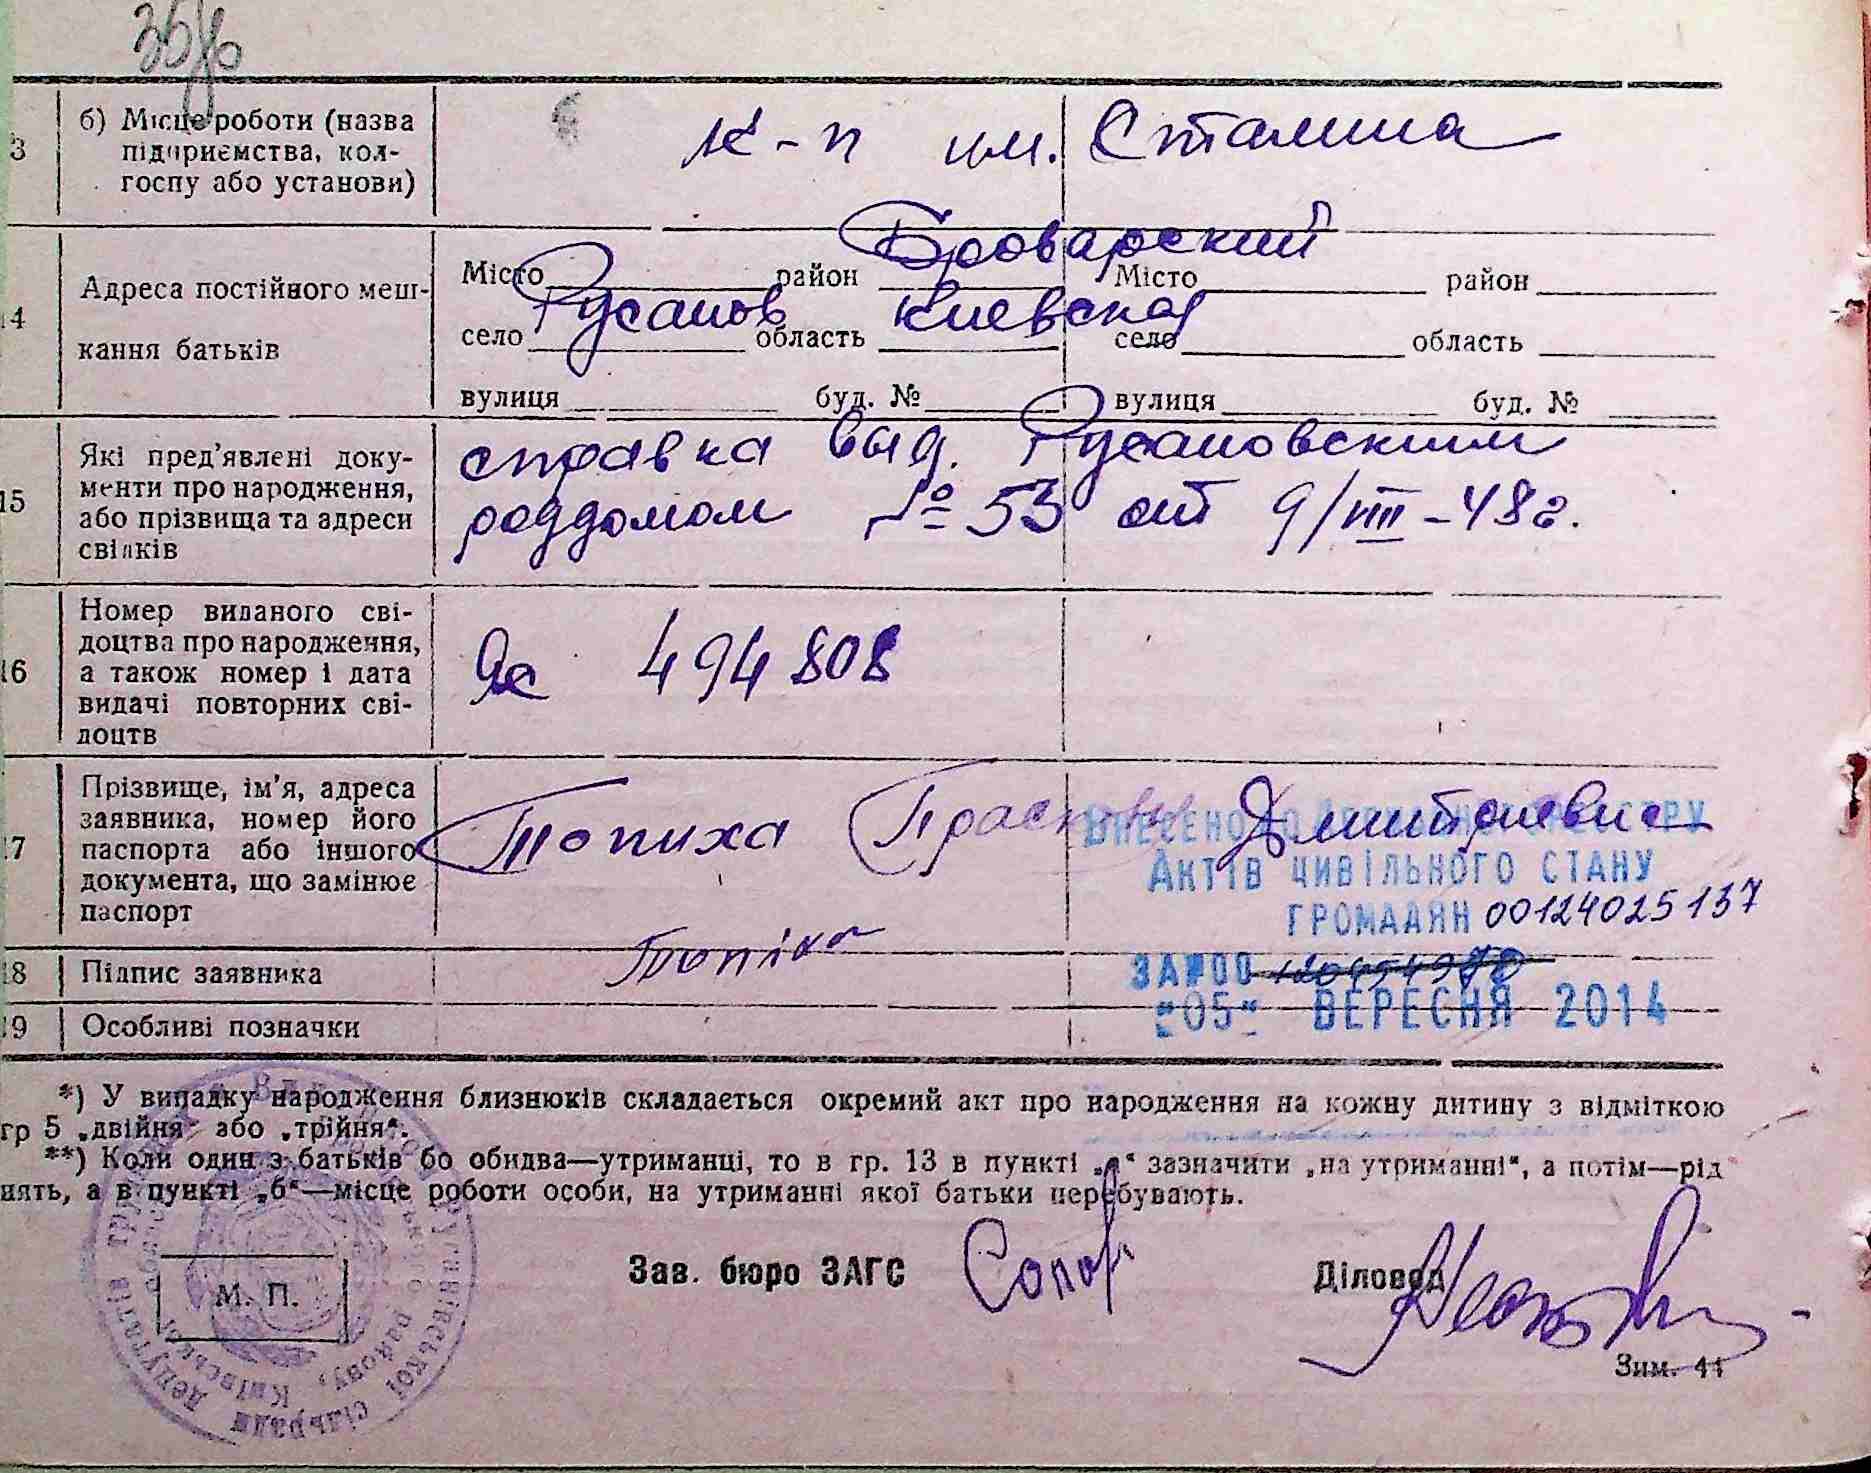 13 б) Місце роботи (назва
підприємства, кол-
госпу або установи)
к-п им. Сталина
14 Адреса постійного меш-
кання батьків
Броварский
Місто район Місто район
Русанов Киевская
село область село область
вулиця буд. № вулиця буд. №
15 Які пред'явлені доку-
менти про народження,
або прізвища та адреси
свідків
справка выд. Русановским
роддомом № 53 от 9/VIII-48г.
16 Номер виданого сві-
доцтва про народження,
а також номер і дата
видачі повторних сві-
доцтв
494808
17 Прізвище, ім'я, адреса
заявника, номер його
паспорта або іншого
документа, що замінює
паспорт
Топиха Прасковья Дмитриевна
ВНЕСЕНО ДО ДЕРЖАВНОГО РЕЄСТРУ
АКТІВ ЦИВІЛЬНОГО СТАНУ
ГРОМАДЯН 00124025137
18 Підпис заявника
ЗА №00
19 Особливі позначки
"05" ВЕРЕСНЯ 2014
*) У випадку народження близнюків складається окремий акт про народження на кожну дитину з відміткою
гр 5 „двійня“ або „трійня“.
**) Коли один з батьків бо обидва—утриманці, то в гр. 13 в пункті „а“ зазначити „на утриманні“, а потім—рід
нять, а в пункті „б“—місце роботи особи, на утриманні якої батьки перебувають.
Зав. бюро ЗАГС Діловод
М. П.
Зим. 44